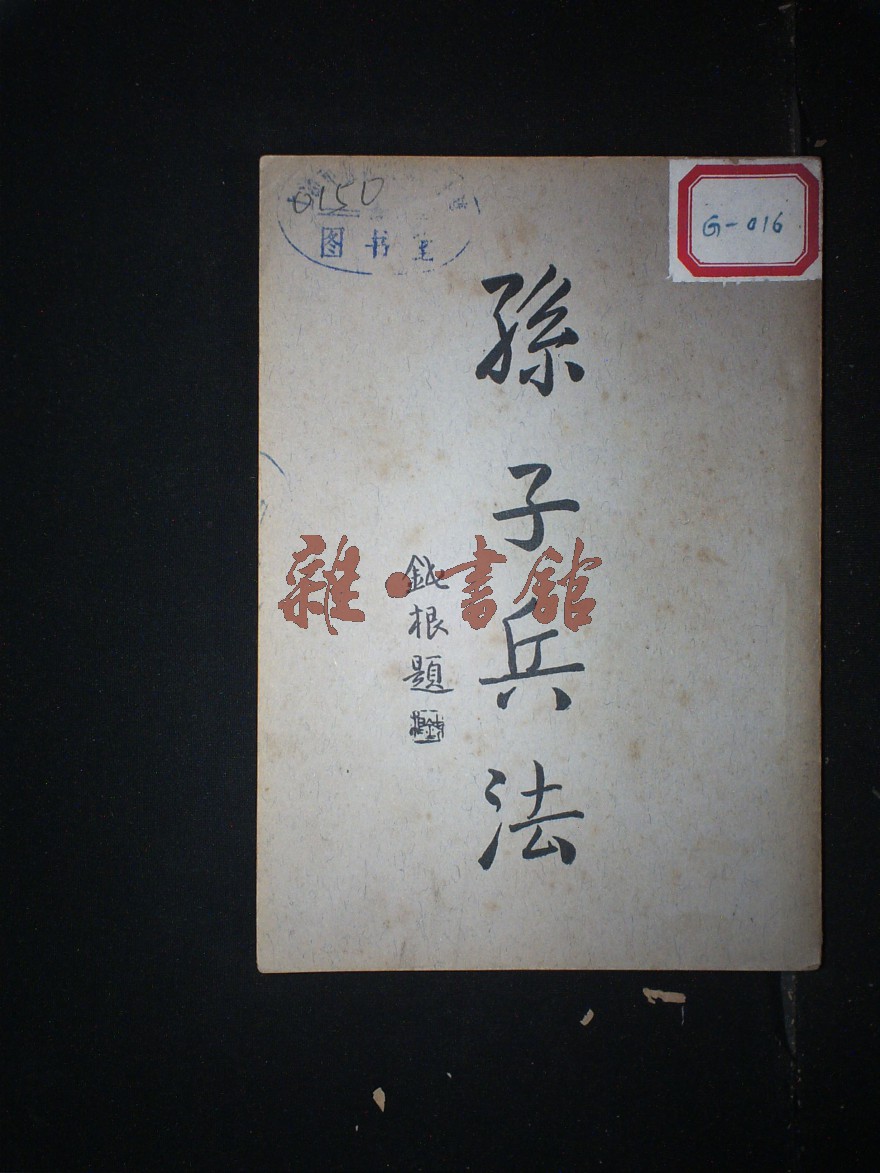 0150
图书室
G-016
孫子兵法
鈍根題
雜·書館